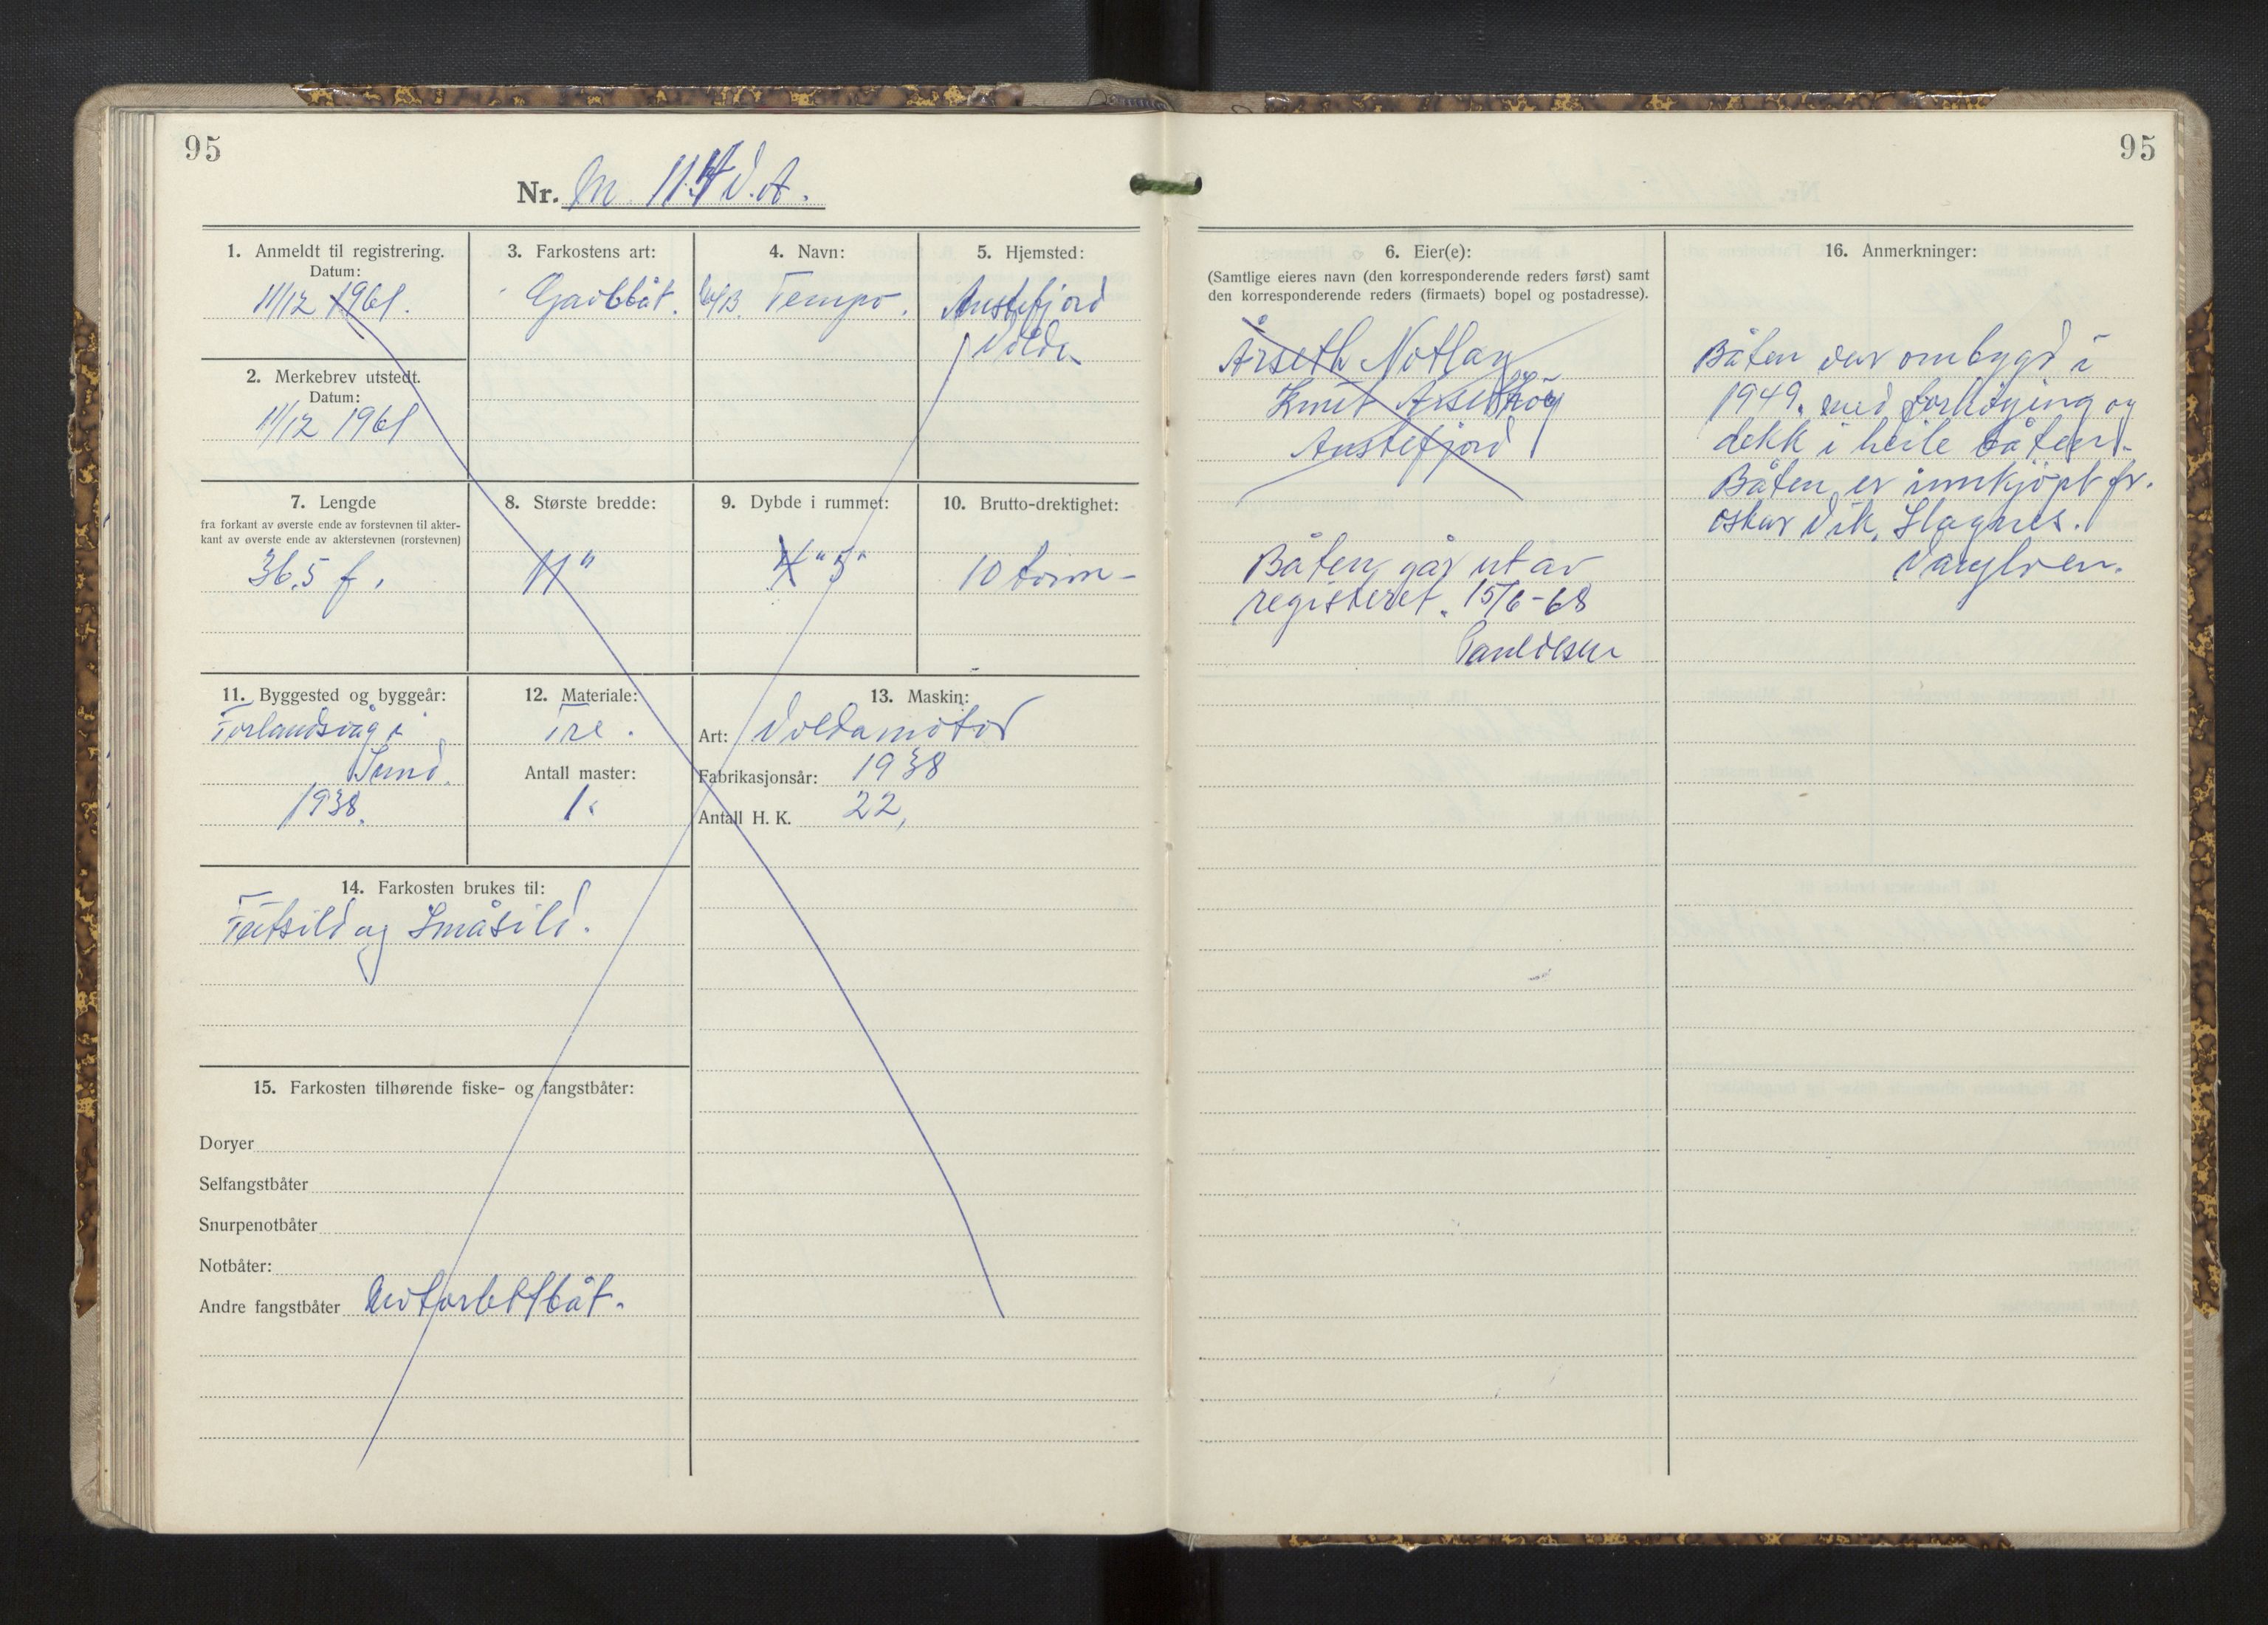 95
95
Nr. M. 114 V.A.
1. Anmeldt til registrering.
Datum:
11/12 1961.
2. Merkebrev utstedt.
Datum:
11/12 1961
3. Farkostens art:
Gavlbåt.
4. Navn:
M/B. Tempo.
5. Hjemsted:
Austefjord
Volda
7. Lengde
fra forkant av øverste ende av forstevnen til akter-
kant av øverste ende av akterstevnen (rorstevnen)
36.5 f.
8. Største bredde:
11"
9. Dybde i rummet:
4"5"
10. Brutto-drektighet:
10 tonn-
11. Byggested og byggeår:
Forlandsvåg i
Sund.
1938.
12. Materiale:
Tre.
Antall master:
1.
13. Maskin:
Art: Voldamotor
Fabrikasjonsår: 1938
Antall H. K. 22,
14. Farkosten brukes til:
Feitsild og Småsild.
15. Farkosten tilhørende fiske- og fangstbåter:
Doryer
Selfangstbåter
Snurpenotbåter
Notbåter:
Andre fangstbåter
6. Eier(e):
(Samtlige eieres navn (den korresponderende reders først) samt
den korresponderende reders (firmaets) bopel og postadresse).
Årseth Notlag
Knut
Austefjord
Båten går ut av
registeret. 15/6-68
16. Anmerkninger:
Båten var ombygd i
1949. med forhöying og
dekk i heile båten.
Båten er innkjöpt fr.
Oskar Vik, Slagnes.
Vanylven.